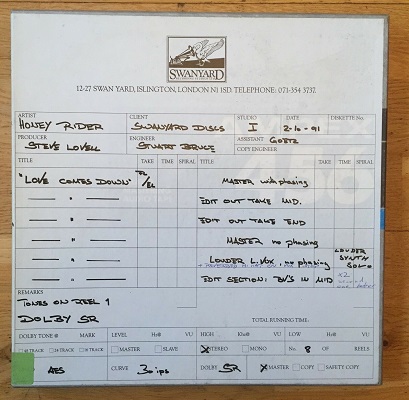 SWANYARD
12-27 SWAN YARD, ISLINGTON, LONDON N1 1SD. TELEPHONE: 071-354 3737.
ARTIST CLIENT STUDIO DATE DISKETTE No.
HONEY RIDER SWANYARD DISCS I 2-10-91
PRODUCER ENGINEER ASSISTANT GOETZ
STEVE LOVELL STUART BRUCE COPY ENGINEER
TITLE TAKE TIME SPIRAL TITLE TAKE TIME SPIRAL
"LOVE COMES DOWN" MASTER with phasing
— " — EDIT OUT TAKE MID.
— " — EDIT OUT TAKE END
— " — MASTER no phasing
— " — LOUDER L.VOX, no phasing LOUDER SYNTH SOLO
— " — EDIT SECTION: BV'S IN MID x2
REMARKS
TONES ON REEL 1
DOLBY SR
TOTAL RUNNING TIME:
DOLBY TONE @ MARK LEVEL Hz@ VU HIGH Khz@ VU LOW Hz@ VU
48 TRACK 24 TRACK 16 TRACK MASTER SLAVE STEREO MONO No. 8 OF REELS
AES CURVE 30 ips DOLBY SR MASTER COPY SAFETY COPY